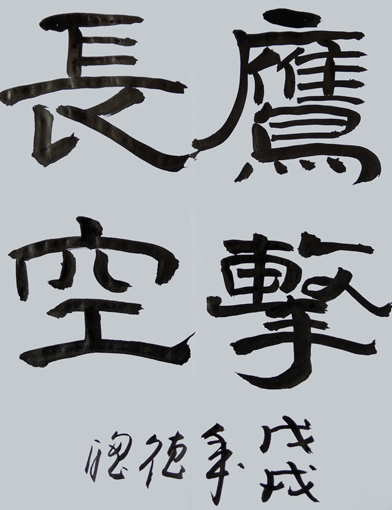 鷹擊
長空
戊戌年德